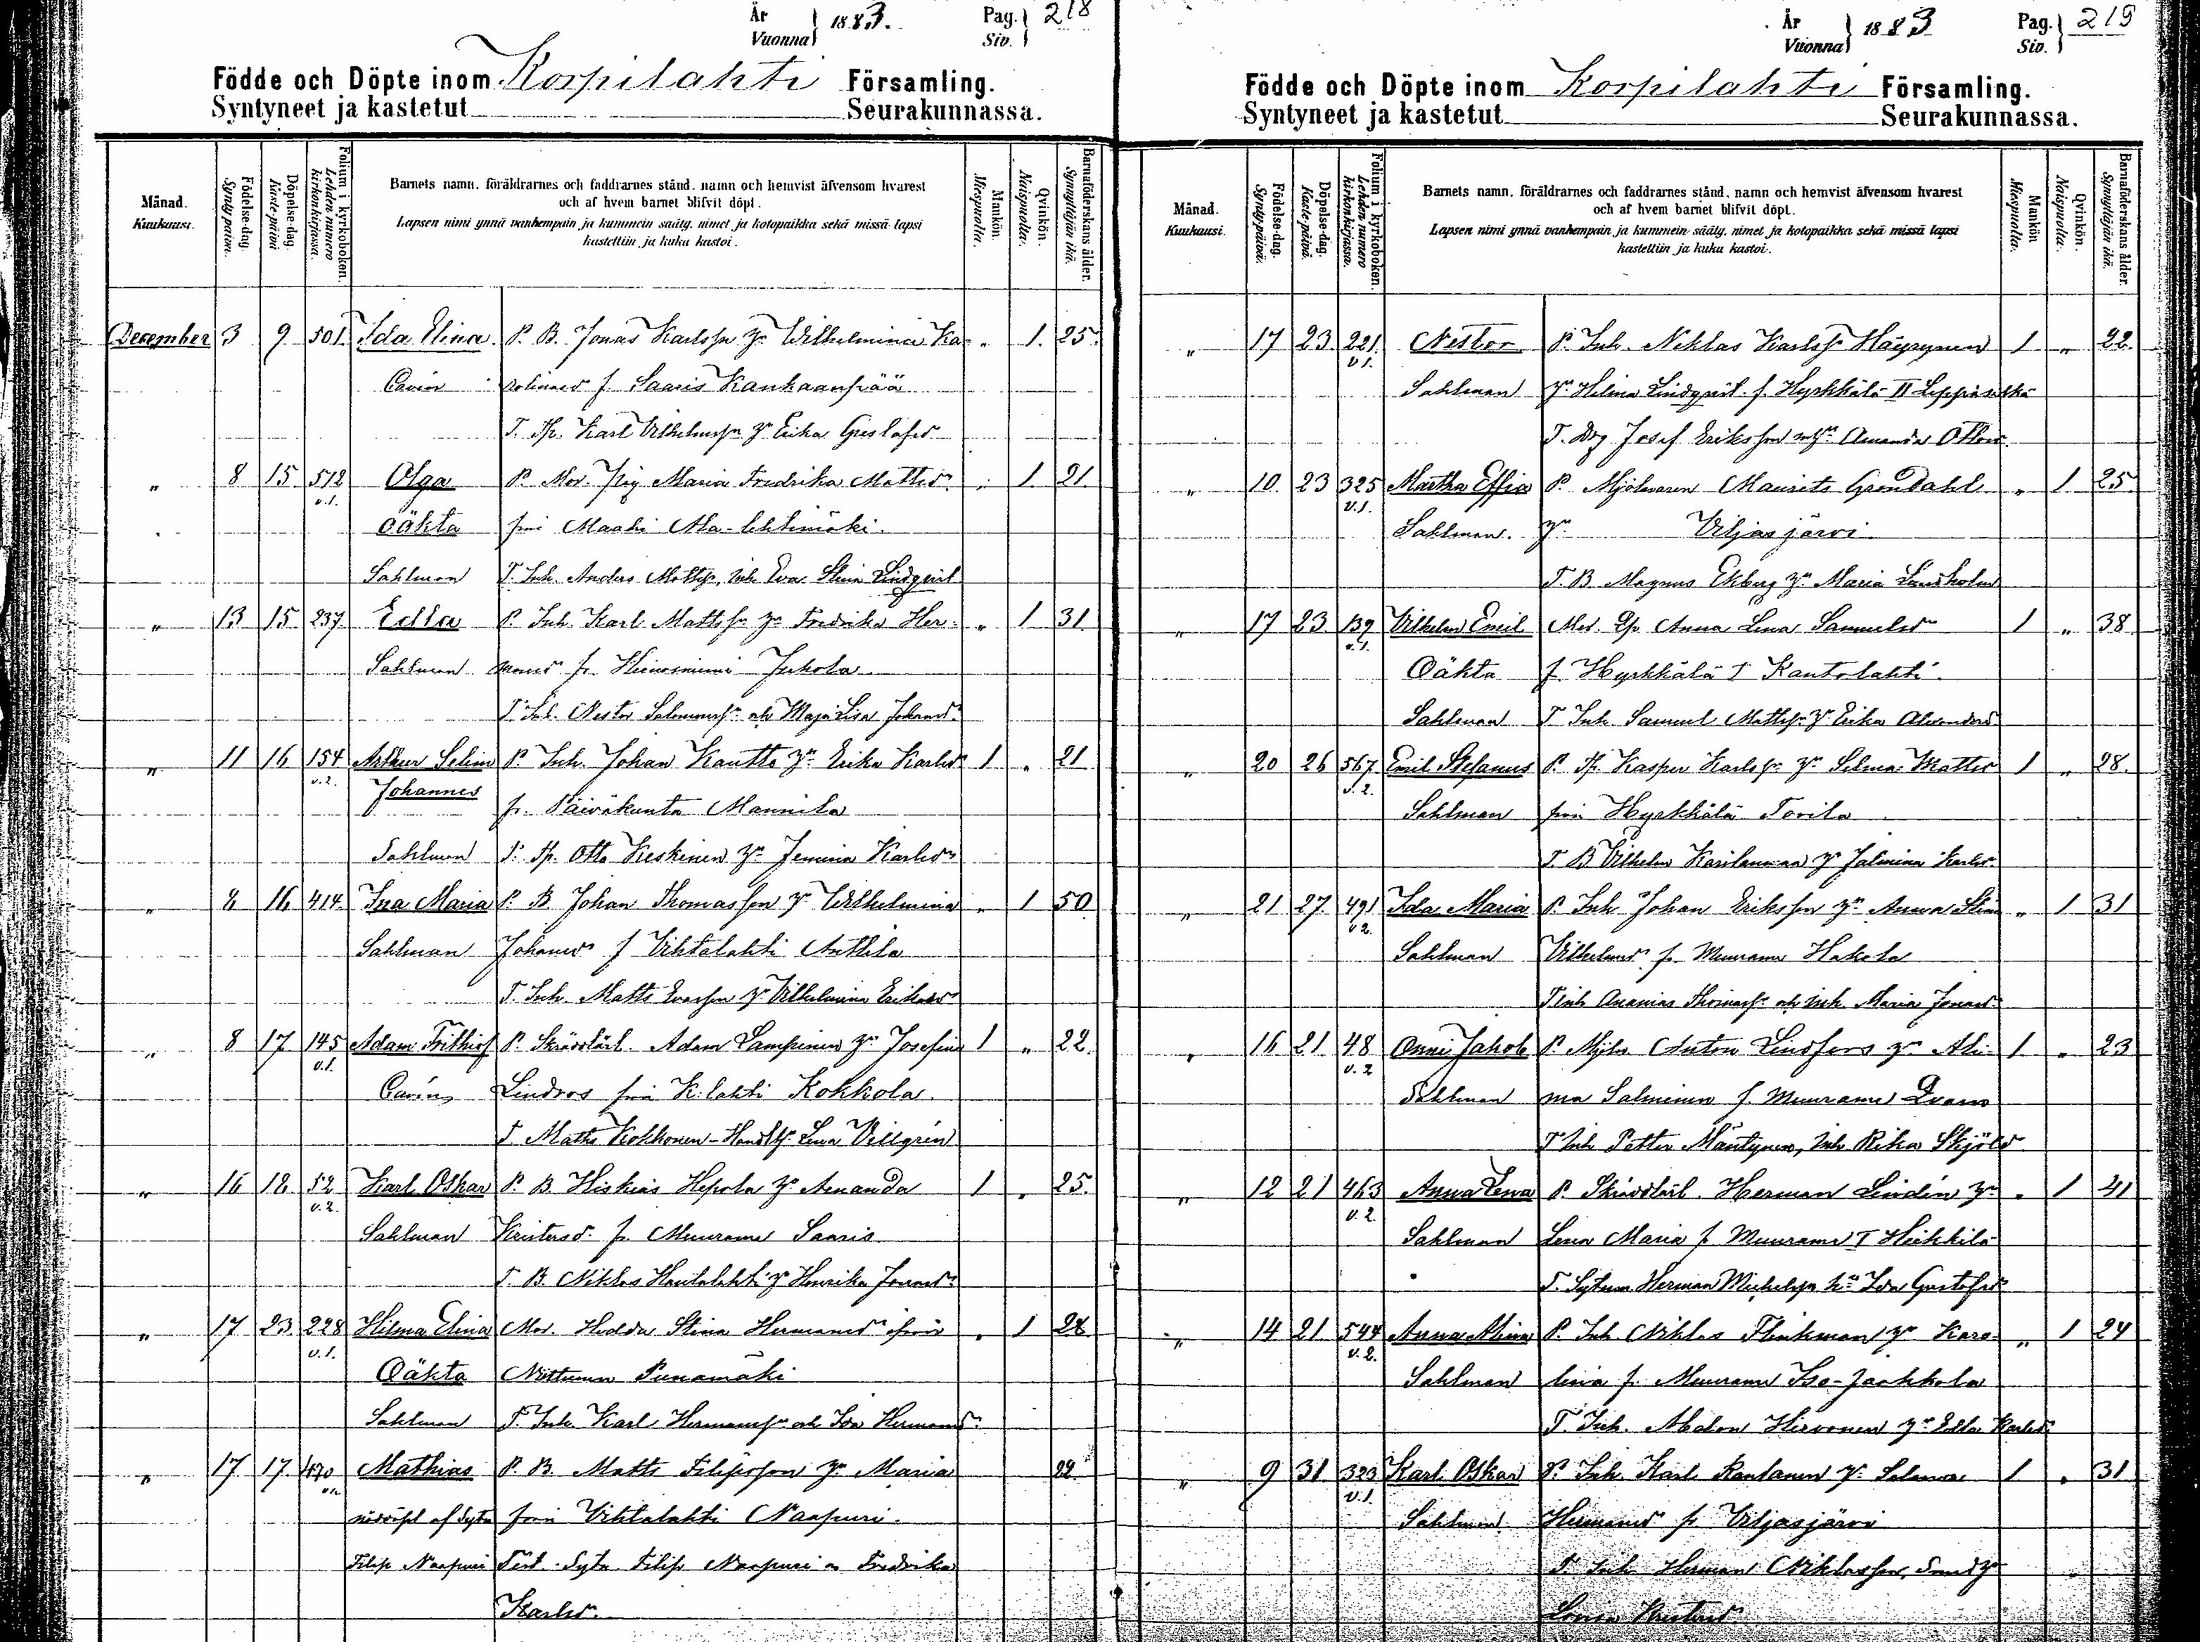 År
Vuonna
1883.
Pag.
Siv.
218
Födde och Döpte inom Korpilahti Församling.
Syntyneet ja kastetut Seurakunnassa.
Månad.
Kuukausi.
Födelse-dag.
Syntypäivä.
Döpelse-dag.
Kaste-päivä.
Folium i kyrkoboken.
Lehden numero kirkonkirjassa.
Barnets namn, föräldrarnes och faddrarnes stånd, namn och hemvist äfvensom hvarest
och af hvem barnet blifvit döpt.
Lapsen nimi ynnä vanhempain ja kummein sääty, nimet ja kotopaikka sekä missä lapsi
kastettiin ja kuka kastoi.
Mankön.
Miespuolta.
Qvinkön.
Naispuolta.
Barnaföderskans ålder.
Synnyttäjän ikä.
December 3 9 501 Ida Elina P. B. Jonas Karlsson Wilhelmina Ka- " 1. 25.
Cavén rolinasd f. Saaris Kankaanpää
T. Tp. Karl Vilhelmss Erika Gustafsd
" 8 15 512 v.1. Olga P. Mor. Maria Fredrika Mattsd " 1 21
Oäkta från Maahi Ala-lehtimäki
Sahlman T. Inh. Anders Mattss, Inh Eva Stina Lindqvist
" 13 15 237 Edla P. Inh. Karl Mattss Fredrika Her- " 1 31
Sahlman mansd fr. Heinosniemi Jukola
T. Inh. Nestor Salomonss och Maja Lisa Johansd
" 11 16 154 v.2. Arthur Selim P. Inh. Johan Kautto Erika Karlsd 1 " 21
Johannes fr. Päiväkunta Mannila
Sahlman T. Tp. Otto Kieskinen Jemina Karlsd
" 8 16 414 Ina Maria P. B. Johan Thomasson Wilhelmina " 1 50
Sahlman Johansd f Vihtalahti Anttila
T. Inh. Matts Evasson Vilhelmina Eriksd
" 8 17 145 v.1. Adam Frithiof P. Skräddärl. Adam Lampinen Josefina 1 " 22
Cavén Lindros från K:lahti Kokkola
T. Matts Kokkonen Lena Villgrén
" 16 18 52 v.2. Karl Oskar P. B. Hiskias Hepola Amanda 1 " 25.
Sahlman Kristersd. fr. Muurame Saaris
T. B. Niklas Hautalahti Henrika Jonasd
" 17 23 228 v.1. Hilma Elina Mor. Hedda Stina Hermansd från " 1 28
Oäkta Nuttunen Punamäki
Sahlman T. Inh. Karl Hermanss och Ida Hermansd
" 17 17 470 Mathias P. B. Matts Filipsson Maria 22
nöddöpt af Sytn från Vihtalahti Naapuri
Filip Naapuri Test. Sytn Filip Naapuri o Fredrika
Karlsd.
År
Vuonna
1883
Pag.
Siv.
219
Födde och Döpte inom Korpilahti Församling.
Syntyneet ja kastetut Seurakunnassa.
Månad.
Kuukausi.
Födelse-dag.
Syntypäivä.
Döpelse-dag.
Kaste-päivä.
Folium i kyrkoboken.
Lehden numero kirkonkirjassa.
Barnets namn, föräldrarnes och faddrarnes stånd, namn och hemvist äfvensom hvarest
och af hvem barnet blifvit döpt.
Lapsen nimi ynnä vanhempain ja kummein sääty, nimet ja kotopaikka sekä missä lapsi
kastettiin ja kuka kastoi.
Mankön
Miespuolta.
Qvinkön.
Naispuolta.
Barnaföderskans ålder.
Synnyttäjän ikä.
" 17 23 221 v1. Nestor P. Inh. Niklas Karlss Häyrynen 1 " 22.
Sahlman Hilma Lindqvist f. Hyrkkälä II Leppäselkä
T. Drg Josef Eriksson Amanda Ottosd
" 10 23 325 v.1. Martha Effia P. Mjölnaren Maurits Gröndahl " 1 25
Sahlman Viljasjärvi
T. B. Magnus Ekberg Maria Lundholm
" 17 23 139 v.1. Vilhelm Emil Mod. Anna Lena Samuelsd 1 " 38
Oäkta f. Hyrkkälä I Kantolahti
Sahlman T Inh. Samuel Mattss Erika Alexandersd
" 20 26 567 v.2. Emil Stefanus P. Tp. Kasper Karlss Selma Mattsd 1 " 28.
Sahlman från Hyrkkälä Tovila
T. B Vilhelm Karilanmaa Jalmina Karlsd
" 21 27 491 v2. Ida Maria P. Inh Johan Eriksson Anna Stina " 1 31
Sahlman Vilhelmsd fr. Muurame Hakola
T inh Ananias Thomass och inh. Maria Jonasd
" 16 21 48 v.2 Onni Jakob P. Mjöln Anton Lindfors Ali- 1 " 23
Sahlman ma Salminen f. Muurame
T Inh Petter Mäntynen, Inh Rika Skjöld
" 12 21 463 v.2. Anna Lena P. Skräddärl. Herman Lindén " 1 41
Sahlman Lena Maria f. Muurame I Heikkilä
T. Sytnm Herman Michelss Ida Gustafsd
" 14 21 544 v.2. Anna Alina P. Inh Niklas Flinkman Karo- " 1 24
Sahlman lina f. Muurame Iso-Jaakkola
T. Inh. Abdon Hirvonen Edla Karlsd
" 9 31 323 v.1. Karl Oskar P. Inh. Karl Rantanen Salma 1 " 31
Sahlman Hermansd fr. Viljasjärvi
T. Inh Herman Niklasson,
Lovisa